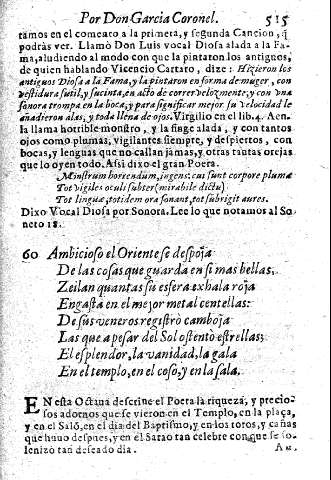 Por Don Garcia Coronel. 515
tamos en el comento a la primera, y segunda Cancion, q̃
podràs ver. Llamò Don Luis vocal Diosa alada a la Fa-
ma, aludiendo al modo con que la pintaron los antiguos,
de quien hablando Vicencio Cartaro, dize: Hizieron los
antiguos Diosa a la Fama, y la pintaron en forma de muger, con
vestidura sutil, y sucinta, en acto de correr velozmente, y con vna
sonora trompa en la boca, y para significar mejor su velocidad le
añadieron alas, y toda llena de ojos. Virgilio en el lib. 4. Aen.
la llama horrible monstro, y la finge alada, y con tantos
ojos como plumas, vigilantes siempre, y despiertos, con
bocas, y lenguas que no callan jamas, y otras tantas orejas
que lo oyen todo. Assi dixo el gran Poeta.
Monstrum horrendum, ingens: cui sunt corpore plumæ
Tot vigiles oculi subter (mirabile dictu)
Tot linguæ, totidem ora sonant, tot subrigit aures.
Dixo Vocal Diosa por Sonora. Lee lo que notamos al So-
neto 18.
60 Ambicioso el Oriente se despoja
De las cosas que guarda en si mas bellas,
Zeilan quantas su esfera exhala roja
Engasta en el mejor metal centellas:
De sus veneros registrò camboja
Las que a pesar del Sol ostentò estrellas;
El esplendor, la vanidad, la gala
En el templo, en el coso, y en la sala.
EN esta Octaua descriue el Poeta la riqueza, y precio-
sos adornos que se vieron en el Templo, en la plaça,
y en el Salõ, en el dia del Baptismo, y en los toros, y cañas
que huuo despues, y en el Sarao tan celebre con que se so-
lenizò tan deseado dia.